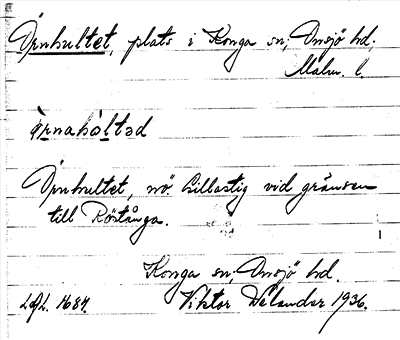 Örnhultet, plats i Konga sn, Onsjö hd,
Malm. l.
örnahòltəd
Örnhultet, nö Lillastig vid gränsen
till Röstånga.
Konga sn, Onsjö hd.
Viktor Welander 1936.